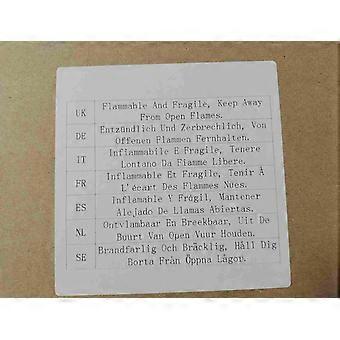 UK Flammable And Fragile, Keep Away
From Open Flames.
DE Entzündlich Und Zerbrechlich, Von
Offenen Flammen Fernhalten.
IT Infiammabile E Fragile, Tenere
Lontano Da Fiamme Libere.
FR Inflammable Et Fragile, Tenir À
L'écart Des Flammes Nues.
ES Inflamable Y Frágil, Mantener
Alejado De Llamas Abiertas.
NL Ontvlambaar En Breekbaar, Uit De
Buurt Van Open Vuur Houden.
SE Brandfarlig Och Bräcklig, Håll Dig
Borta Från Öppna Lågor.